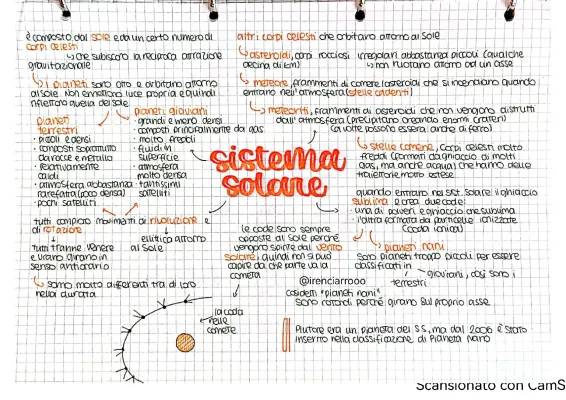 è composto dal sole e da un certo numero di
corpi celesti
che subiscono la reciproca attrazione
gravitazionale
i pianeti sono otto e orbitano attorno
al sole. Non emettono luce propria e quindi
riflettono quella del sole
pianeti
terrestri
· piccoli e densi
· composti soprattutto
da rocce e metallo
· relativamente
caldi
· atmosfera abbastanza
rarefatta (poco densa)
· pochi satelliti
pianeti gioviani
· grandi e meno densi
· composti principalmente da gas
· molto freddi
· fluidi in
superficie
· atmosfera
molto densa
· tantissimi
satelliti
tutti compiono movimenti di rivoluzione e
di rotazione
tutti tranne Venere
e Urano girano in
senso antiorario
ellittica attorno
al Sole
sono molto differenti tra di loro
nella durata
sistema
solare
altri corpi celesti che orbitano attorno al Sole
asteroidi, corpi rocciosi irregolari abbastanza piccoli (qualche
decina di km)
non ruotano attorno ad un asse
meteore, frammenti di comete/asteroidi che si incendiano quando
entrano nell'atmosfera (stelle cadenti)
meteoriti, frammenti di asteroidi che non vengono distrutti
dall'atmosfera (precipitano creando enormi crateri)
(a volte possono essere anche di ferro)
stelle comete, corpi celesti molto
freddi (formati da ghiaccio di molti
gas, ma anche acqua) che hanno delle
traiettorie molto estese
quando entrano nel sist. solare il ghiaccio
sublima e crea due code:
· una di polveri e ghiaccio che sublima
· l'altra formata da particelle ionizzate
(coda ionica)
le code sono sempre
opposte al Sole perché
vengono spinte dal vento
solare, quindi non si può
capire da che parte va la
cometa
la coda
nelle
comete
pianeti nani
sono pianeti troppo piccoli per essere
classificati in
gioviani, così sono i
terrestri
@irenciarrooo
cosidetti "pianeti nani"
sono rotondi perché girano sul proprio asse
Plutone era un pianeta del S.S, ma dal 2006 è stato
inserito nella classificazione di Pianeta nano
Scansionato con CamS